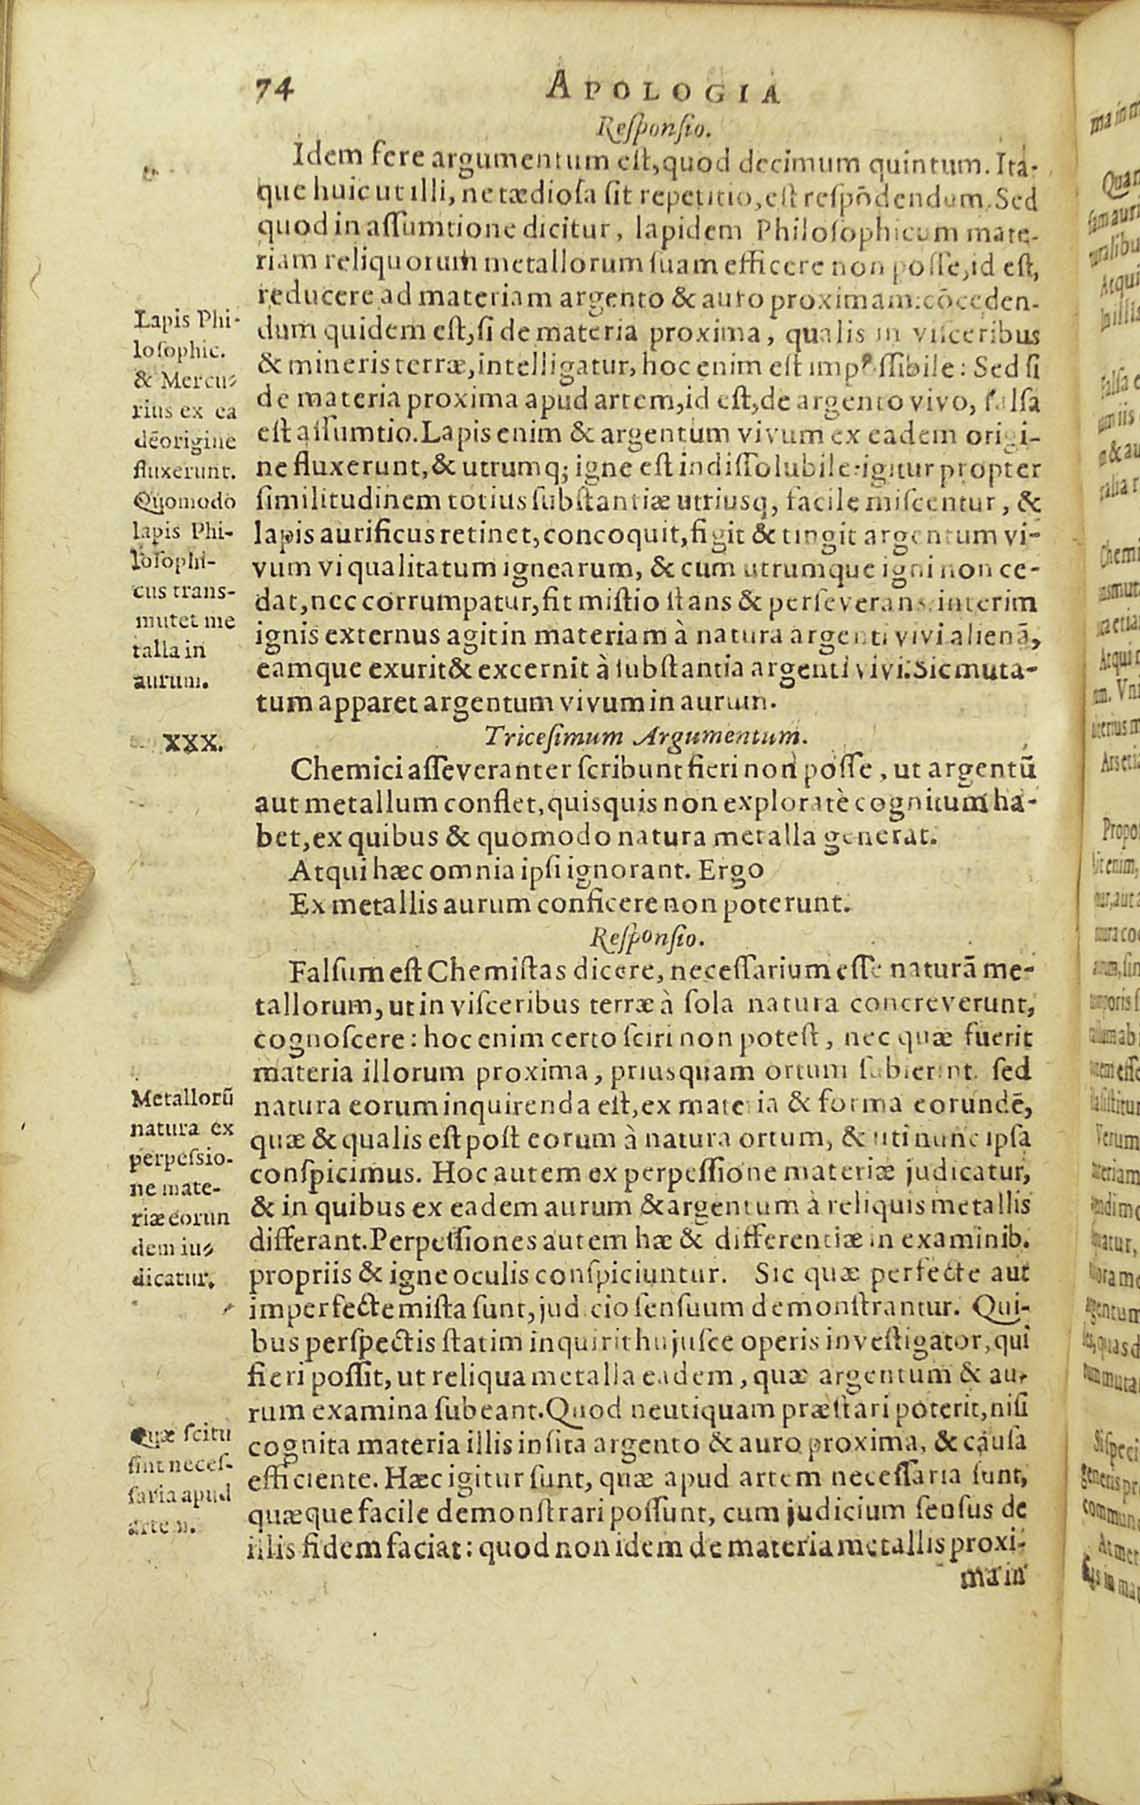 74 APOLOGIA
Reſponſio.
Idem fere argumentum eſt, quod decimum quintum. Ita-
que huic ut illi, ne tædioſa ſit repetitio, eſt reſpōdendum. Sed
quod in aſſumtione dicitur, lapidem Philoſophicum mate-
riam reliquorum metallorum ſuam efficere non poſſe, id eſt,
reducere ad materiam argento & auro proximam: cōceden-
dum quidem eſt, ſi de materia proxima, qualis in viſceribus
& mineris terræ, intelligatur, hoc enim eſt impoſſibile: Sed ſi
de materia proxima apud artem, id eſt, de argento vivo, falſa
eſt aſſumtio. Lapis enim & argentum vivum ex eadem origi-
ne fluxerunt, & utrumq; igne eſt indiſſolubile: igitur propter
ſimilitudinem totius ſubſtantiæ utriusq, facile miſcentur, &
lapis aurificus retinet, concoquit, figit & tingit argentum vi-
vum vi qualitatum ignearum, & cum utrumque igni non ce-
dat, nec corrumpatur, fit miſtio ſtans & perſeverans: interim
ignis externus agit in materiam à natura argenti vivi alienā,
eamque exurit & excernit à ſubſtantia argenti vivi. Sic muta-
tum apparet argentum vivum in aurum.
Lapis Phi-
loſophic.
& Mercu-
rius ex ea
dē origine
fluxerunt.
Quomodo
lapis Phi-
loſophi-
cus trans-
mutet me
talla in
aurum.
XXX.
Triceſimum Argumentum.
Chemici aſſeveranter ſcribunt fieri non poſſe, ut argentū
aut metallum conflet, quisquis non exploratè cognitum ha-
bet, ex quibus & quomodo natura metalla generat.
Atqui hæc omnia ipſi ignorant. Ergo
Ex metallis aurum conficere non poterunt.
Reſponſio.
Falſum eſt Chemiſtas dicere, neceſſarium eſſe naturā me-
tallorum, ut in viſceribus terræ à ſola natura concreverunt,
cognoſcere: hoc enim certo ſciri non poteſt, nec quæ fuerit
materia illorum proxima, priusquam ortum ſubierint. ſed
natura eorum inquirenda eſt, ex materia & forma eorundē,
quæ & qualis eſt poſt eorum à natura ortum, & uti nunc ipſa
conſpicimus. Hoc autem ex perpeſſione materiæ judicatur,
& in quibus ex eadem aurum & argentum à reliquis metallis
differant. Perpeſſiones autem hæ & differentiæ in examinib.
propriis & igne oculis conſpiciuntur. Sic quæ perfecte aut
imperfecte miſta ſunt, judicio ſenſuum demonſtrantur. Qui-
bus perſpectis ſtatim inquirit hujuſce operis inveſtigator, qui
fieri poſſit, ut reliqua metalla eadem, quæ argentum & au-
rum examina ſubeant. Quod neutiquam præſtari poterit, niſi
cognita materia illis inſita argento & auro proxima, & cauſa
efficiente. Hæc igitur ſunt, quæ apud artem neceſſaria ſunt,
quæque facile demonſtrari poſſunt, cum judicium ſenſus de
illis fidem faciat: quod non idem de materia metallis proxi-
Metallorū
natura ex
perpeſsio-
ne mate-
riæ eorun
dem iu-
dicatur.
Quæ ſcitu
ſint neceſ-
ſaria apud
artem.
ma in